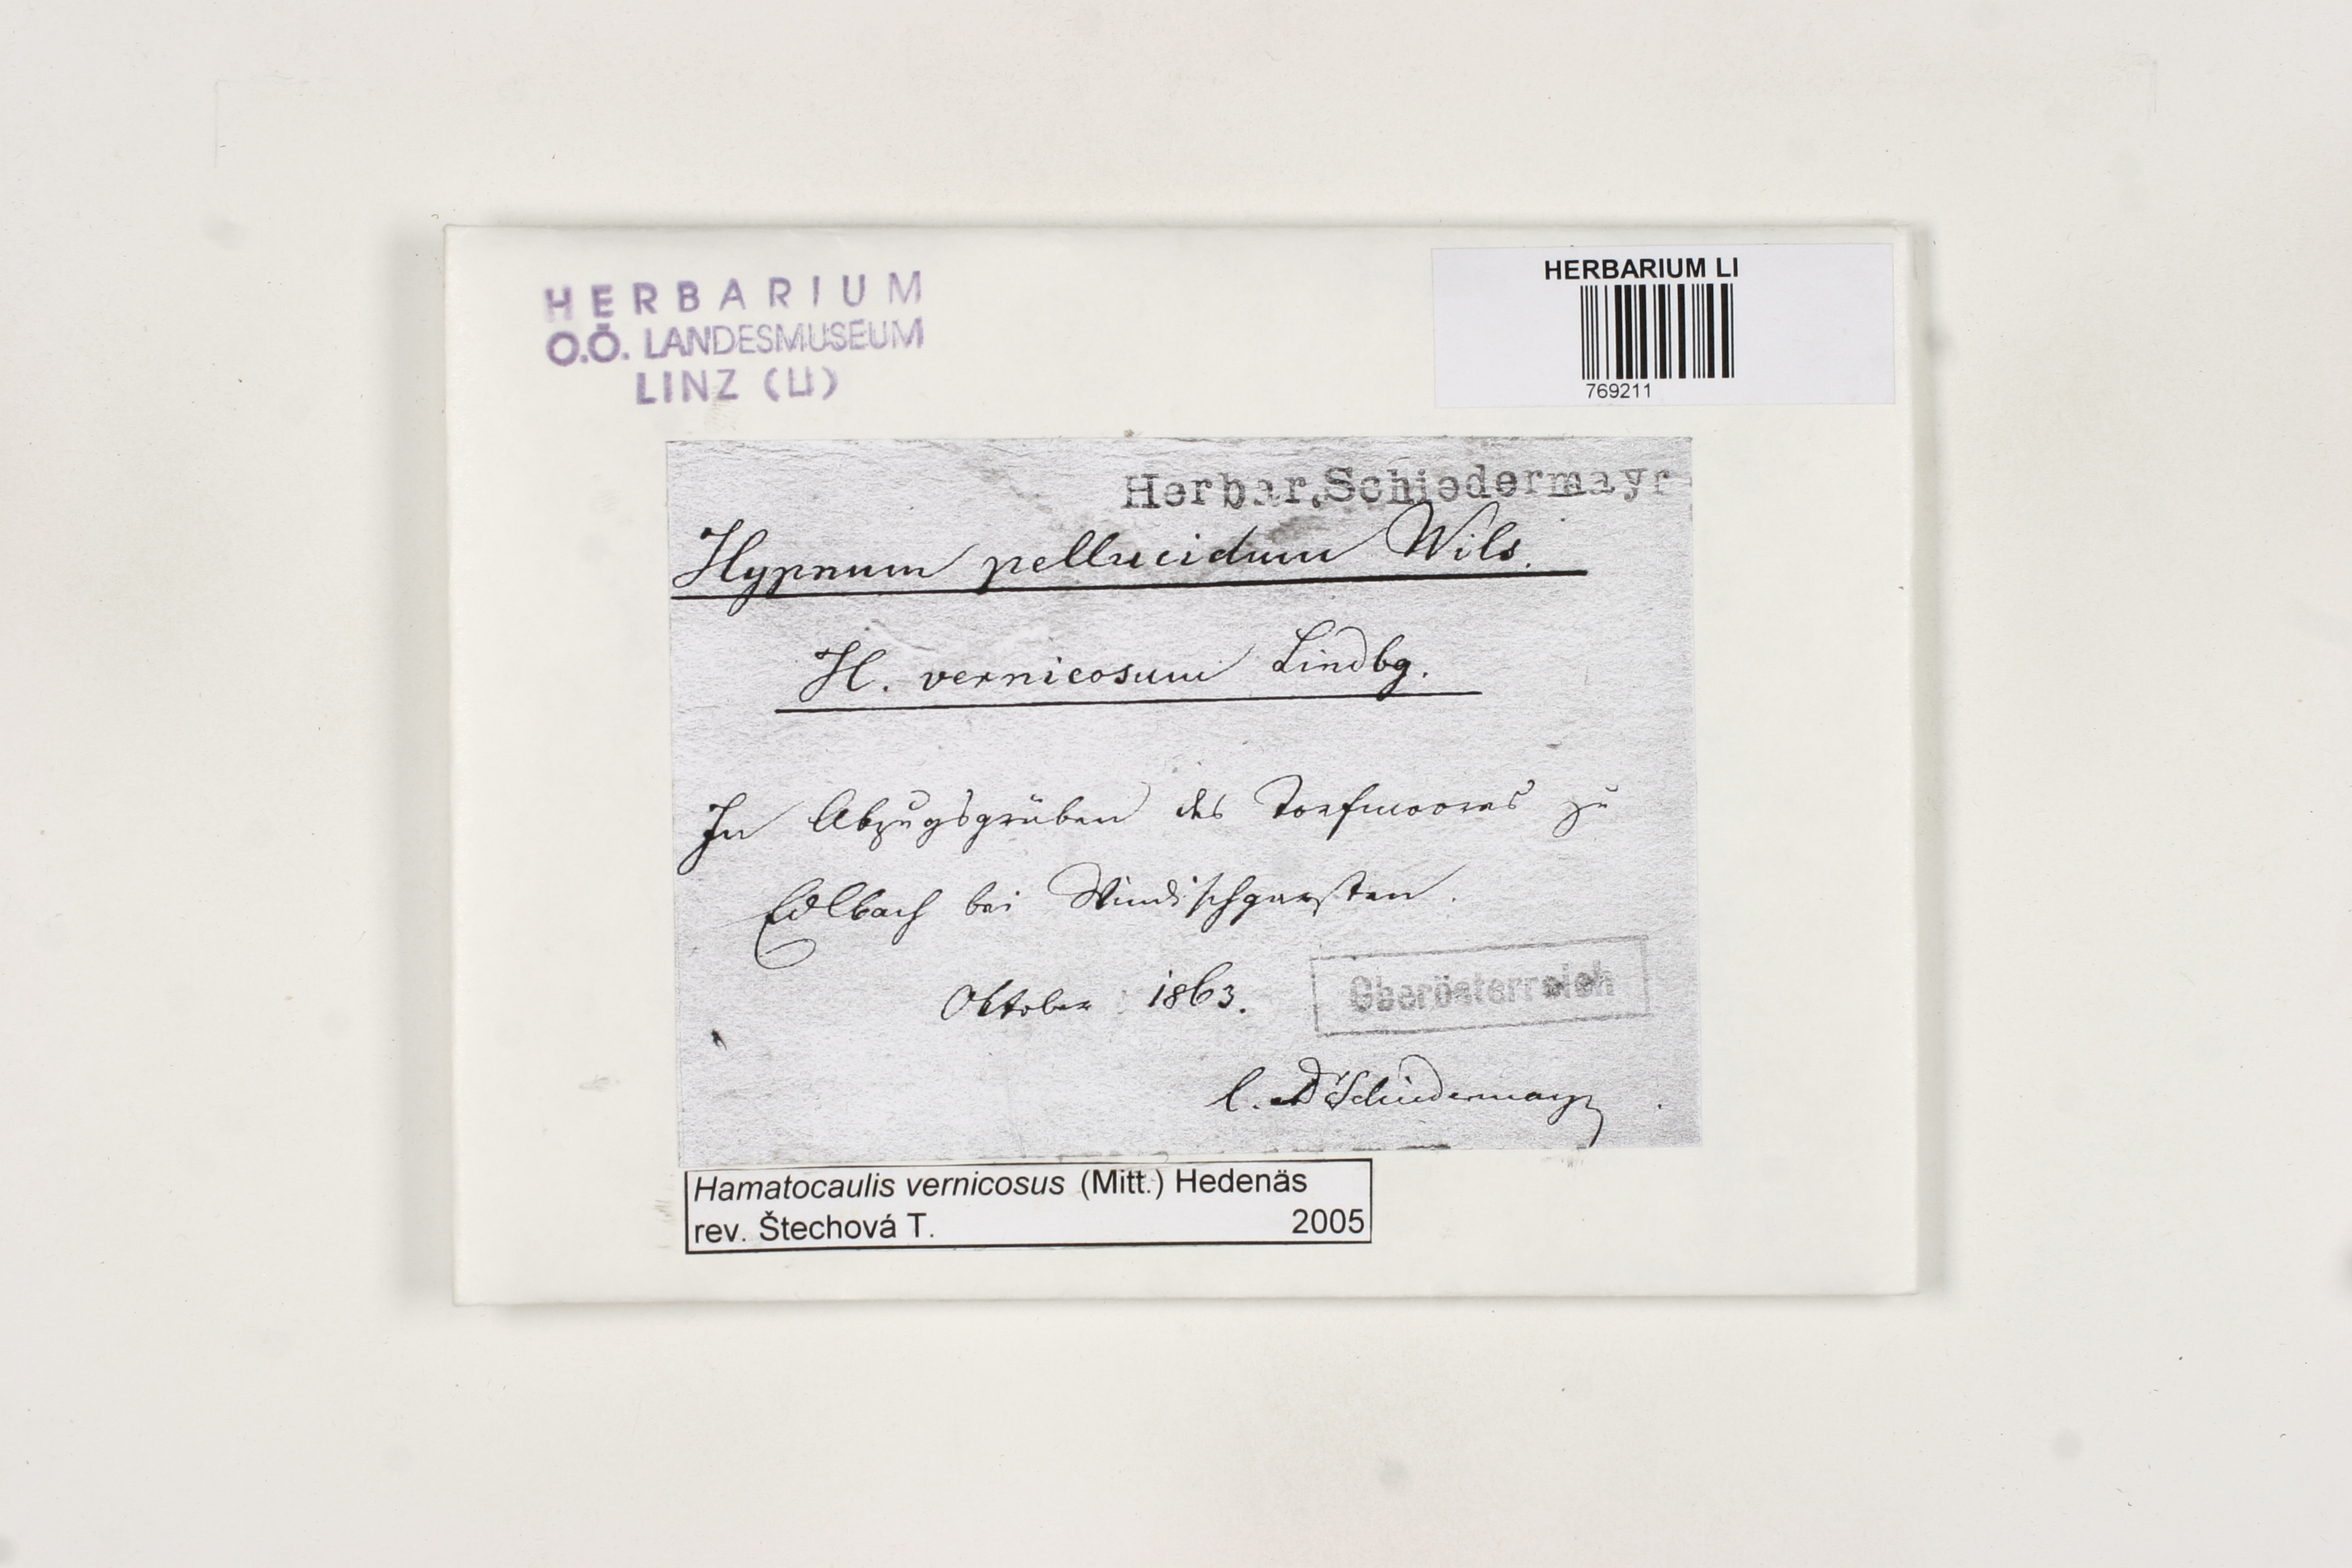 HERBARIUM
O.Ö. LANDESMUSEUM
LINZ (LI)
HERBARIUM LI
769211
Herbar. Schiedermayr
Hypnum pellucidum Wils.
H. vernicosum Lindbg.
In Abzugsgräben des Torfmoores zu
Edlbach bei Windischgarsten.
Oktober 1863.
Oberösterreich
l. Dr Schiedermayr
Hamatocaulis vernicosus (Mitt.) Hedenäs
rev. Štechová T. 2005